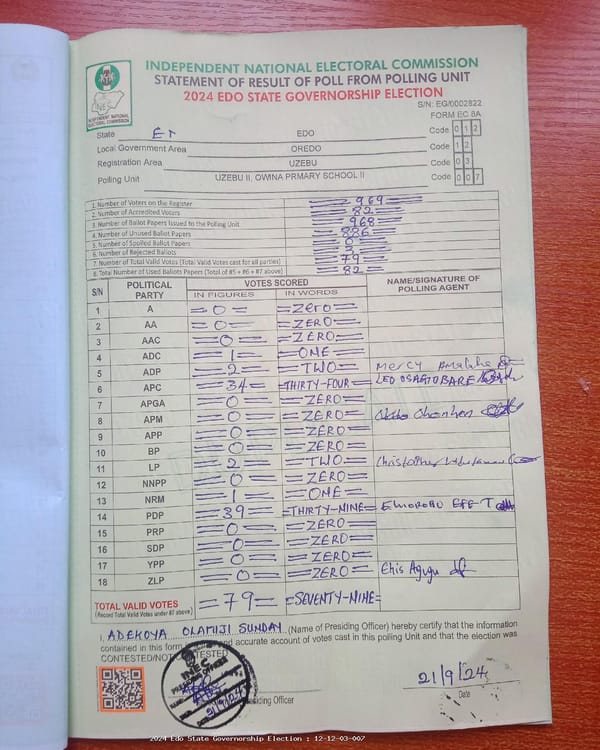 INDEPENDENT NATIONAL ELECTORAL COMMISSION
STATEMENT OF RESULT OF POLL FROM POLLING UNIT
2024 EDO STATE GOVERNORSHIP ELECTION
S/N: EG/0002822
FORM EC 8A
INDEPENDENT NATIONAL ELECTORAL COMMISSION
State EDO Code 0 1 2
Local Government Area OREDO Code 1 2
Registration Area UZEBU Code 0 3
Polling Unit UZEBU II, OWINA PRMARY SCHOOL II Code 0 0 7
1. Number of Voters on the Register =969=
2. Number of Accredited Voters =82=
3. Number of Ballot Papers Issued to the Polling Unit =968=
4. Number of Unused Ballot Papers =886=
5. Number of Spoiled Ballot Papers =0=
6. Number of Rejected Ballots =3=
7. Number of Total Valid Votes (Total Valid Votes cast for all parties) =79=
8. Total Number of Used Ballots Papers (Total of #5 + #6 + #7 above) =82=
S/N POLITICAL PARTY VOTES SCORED NAME/SIGNATURE OF POLLING AGENT
IN FIGURES IN WORDS
1 A =0= =Zero=
2 AA =0= =ZERO=
3 AAC =0= =ZERO=
4 ADC =1= =ONE=
5 ADP =2= =TWO= Mercy
6 APC =34= =THIRTY-FOUR= LEO
7 APGA =0= =ZERO=
8 APM =0= =ZERO=
9 APP =0= =ZERO=
10 BP =0= =ZERO=
11 LP =2= =TWO= Christopher
12 NNPP =0= =ZERO=
13 NRM =1= =ONE=
14 PDP =39= =THIRTY-NINE= EFE T
15 PRP =0= =ZERO=
16 SDP =0= =ZERO=
17 YPP =0= =ZERO=
18 ZLP =0= =ZERO= Ehis Agugu
TOTAL VALID VOTES =79= =SEVENTY-NINE=
(Record Total Valid Votes under #7 above)
I, ADEKOYA OLAMIJI SUNDAY (Name of Presiding Officer) hereby certify that the information
contained in this form and accurate account of votes cast in this polling Unit and that the election was
CONTESTED/NOT CONTESTED
INEC
21/9/24
Presiding Officer
21/9/24
Date
2024 Edo State Governorship Election : 12-12-03-007